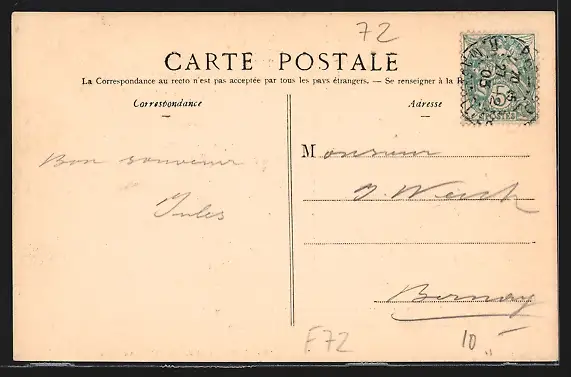 72
CARTE POSTALE
La Correspondance au recto n'est pas acceptée par tous les pays étrangers. — Se renseigner à la
Correspondance
Bon souvenir
Jules
Adresse
Monsieur
J.
Bernay
F72
10.-
POSTES